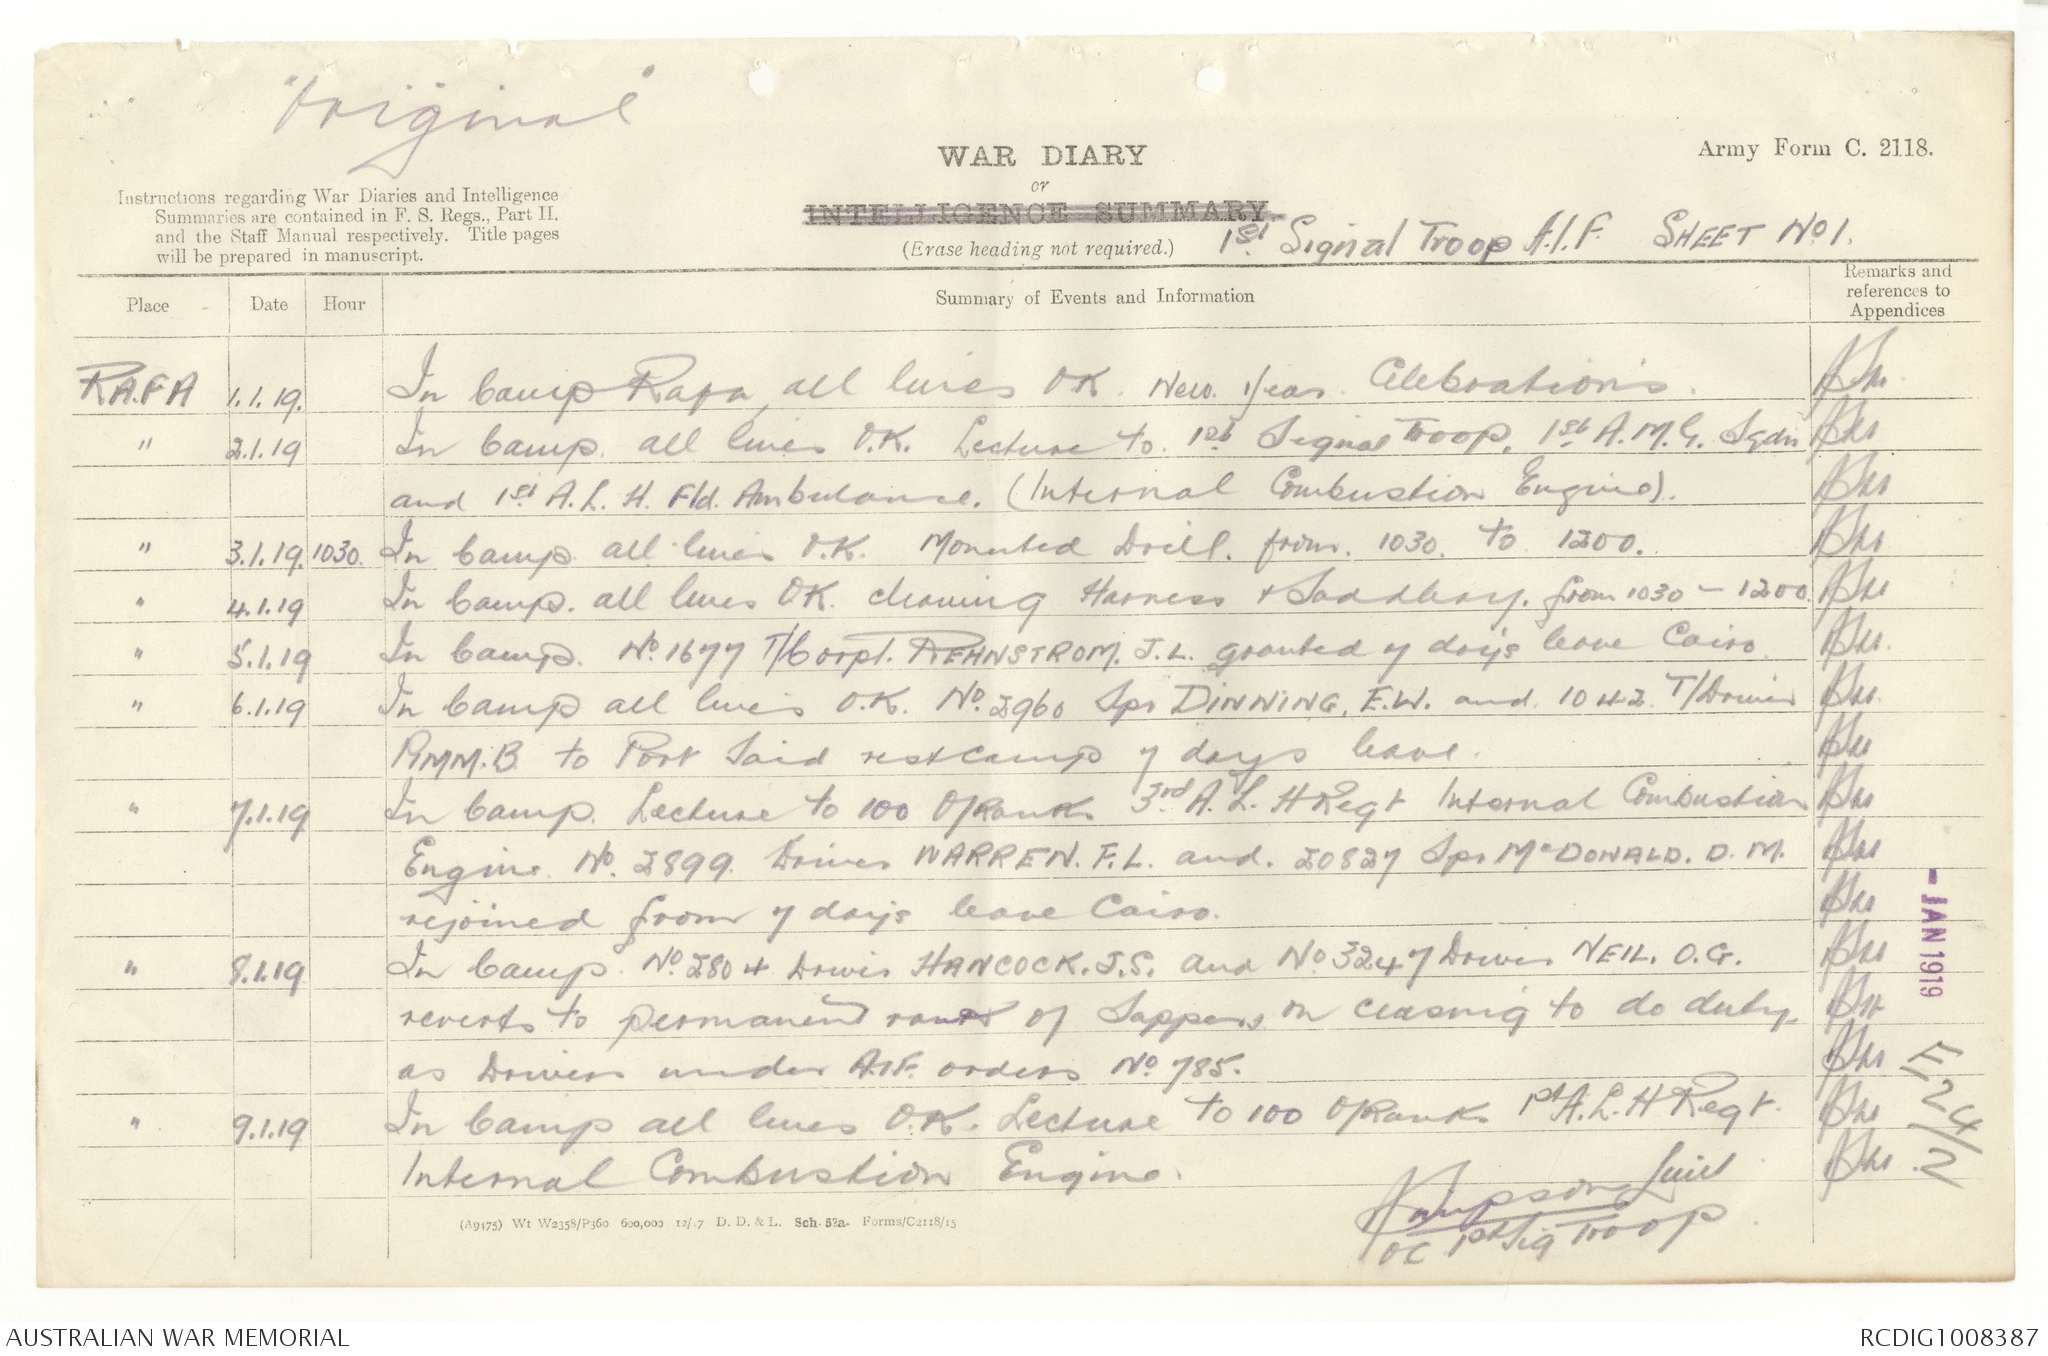 "Original"
WAR DIARY
or
INTELLIGENCE SUMMARY
(Erase heading not required.)
Army Form C. 2118.
Instructions regarding War Diaries and Intelligence
Summaries are contained in F. S. Regs., Part II.
and the Staff Manual respectively. Title pages
will be prepared in manuscript.
1st Signal Troop A.I.F. SHEET No 1.
Place Date Hour Summary of Events and Information Remarks and references to Appendices
RAFA 1.1.19. In Camp Rafa, all lines OK. New Year Celebrations.
" 2.1.19 In Camp. all lines O.K. Lecture to 1st Signal Troop, 1st A.M.G. Sqdn
and 1st A.L.H. Fld. Ambulance. (Internal Combustion Engine).
" 3.1.19. 1030. In Camp all lines O.K. Mounted Drill. from. 1030. to 1200.
" 4.1.19 In Camp. all lines OK. cleaning Harness & Saddlery. from 1030 - 1200.
" 5.1.19 In Camp. No. 1677 T/Corpl. REHNSTROM. J.L. granted 7 days leave Cairo.
" 6.1.19 In Camp all lines O.K. No. 2960 Spr DINNING, E.W. and 1042 T/Driver
B. to Port Said rest camp 7 days leave.
" 7.1.19 In Camp. Lecture to 100 O/Ranks 3rd A.L.H Regt Internal Combustion
Engine. No. 2899. Driver WARREN. F.L. and. 20827 Spr McDONALD. D.M.
rejoined from 7 days leave Cairo.
" 8.1.19 In Camp. No 2804 Driver HANCOCK. J.S. and No 3247 Driver NEIL. O.G.
reverts to permanent rank of Sappers on ceasing to do duty
as Drivers under A.I.F. orders No 785.
" 9.1.19 In Camp all lines O.K. Lecture to 100 O/Ranks 1st A.L.H Regt.
Internal Combustion Engine.
Lieut
OC 1st Sig Troop
- JAN 1919
E24/2
(A9175) Wt W2358/P360 600,000 12/17 D. D. & L. Sch. 52a. Forms/C2118/15
AUSTRALIAN WAR MEMORIAL
RCDIG1008387